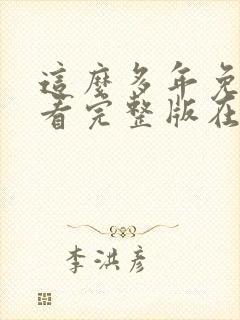 這麼多年免
看完整版在
李洪彥